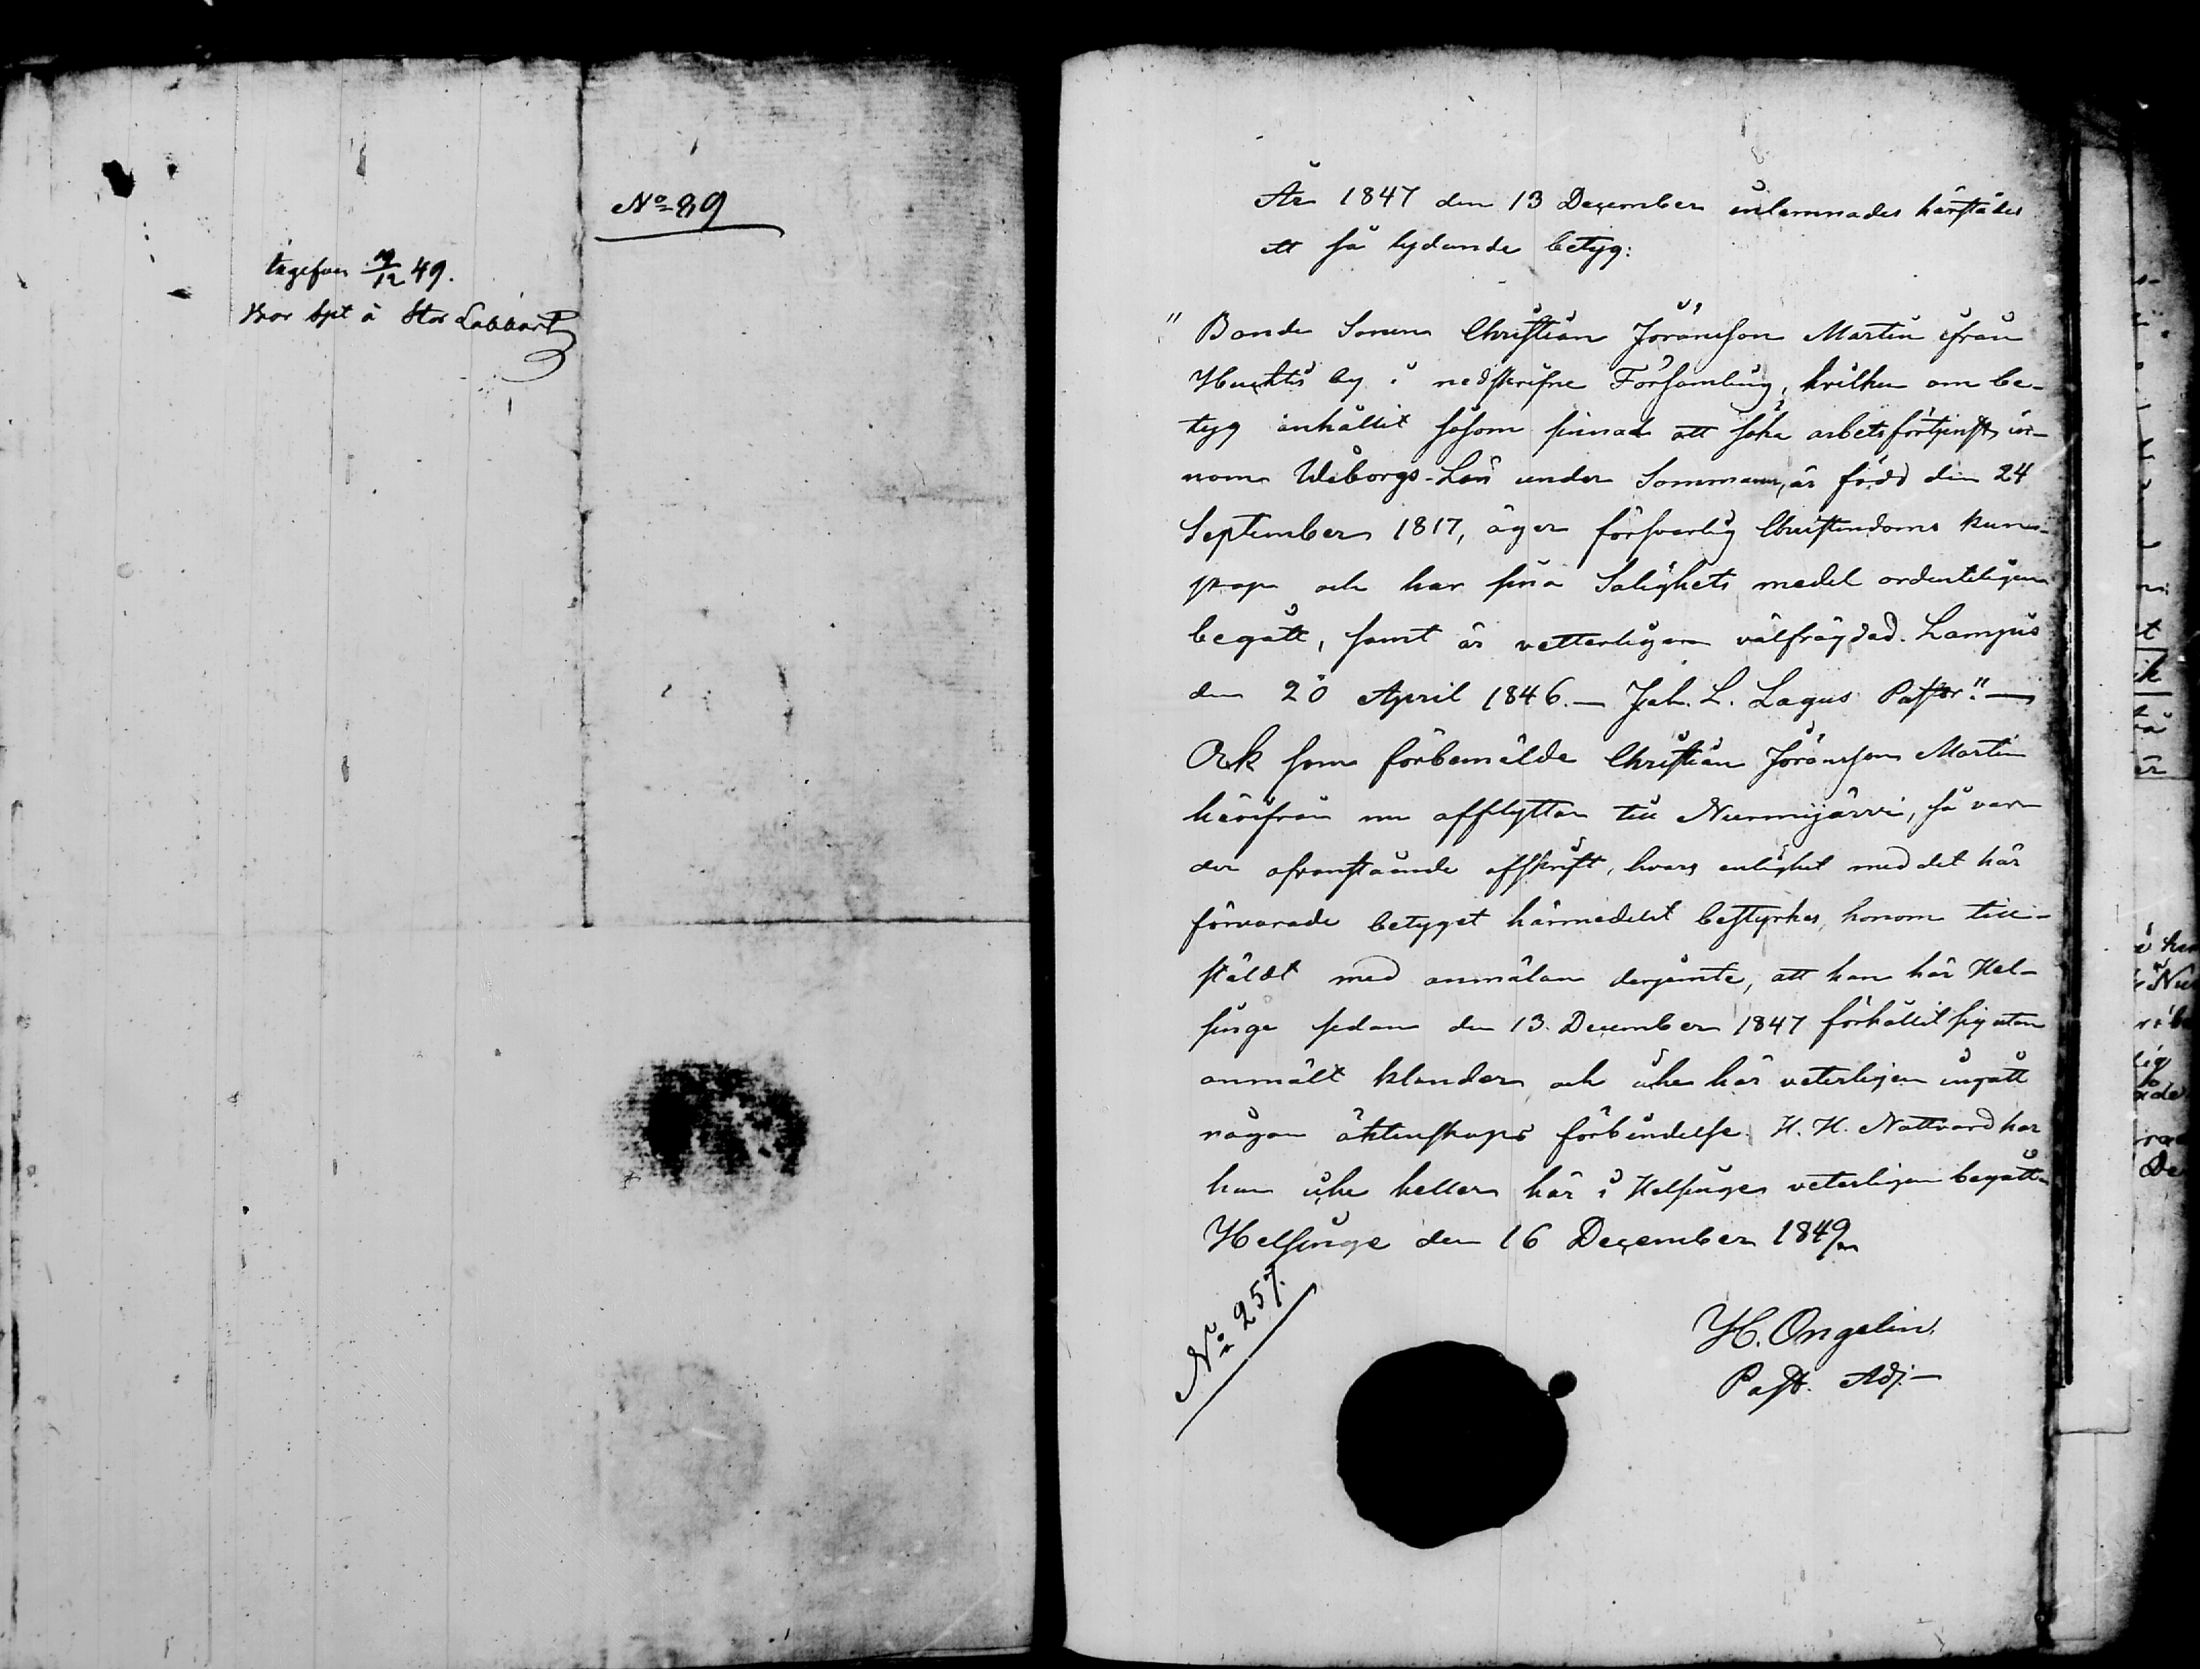 No 89
49.
å Stor Labbart
År 1847 den 13 December inlemnades härstädes
ett så lydande betyg:
"Bonde Sonen Christian Jöransson Martin ifrån
by i nedskrifne Församling, hvilken om be-
tyg anhållit såsom sinnad att söka arbetsförtjenst in-
nom Wiborgs-Län under Sommaren, är född den 24
September 1817, äger försvarlig Christendoms kun-
skap och har sina Salighets medel ordenteligen
begått, samt är vetterligen välfrägdad. Lampis
den 20 April 1846. — Joh. L. Lagus Pastor." —
Ock som förbemälde Christian Jöransson Martin
härifrån nu afflyttar till Nurmijärvi, så var-
der ofvanstående afskrift, hvars enlighet med det här
förvarade betyget härmedelst bestyrkes, honom till-
stäldt med anmälan derjemte, att han här i Hel-
singe sedan den 13 December 1847 förhållit sig utan
anmält klander och icke här veterligen ingått
någon äktenskaps förbindelse. H. H. Nattvard har
han icke heller här i Helsinge veterligen begått.
Helsinge den 16 December 1849
No 257.
H. Ongelin.
Past. Adj. —